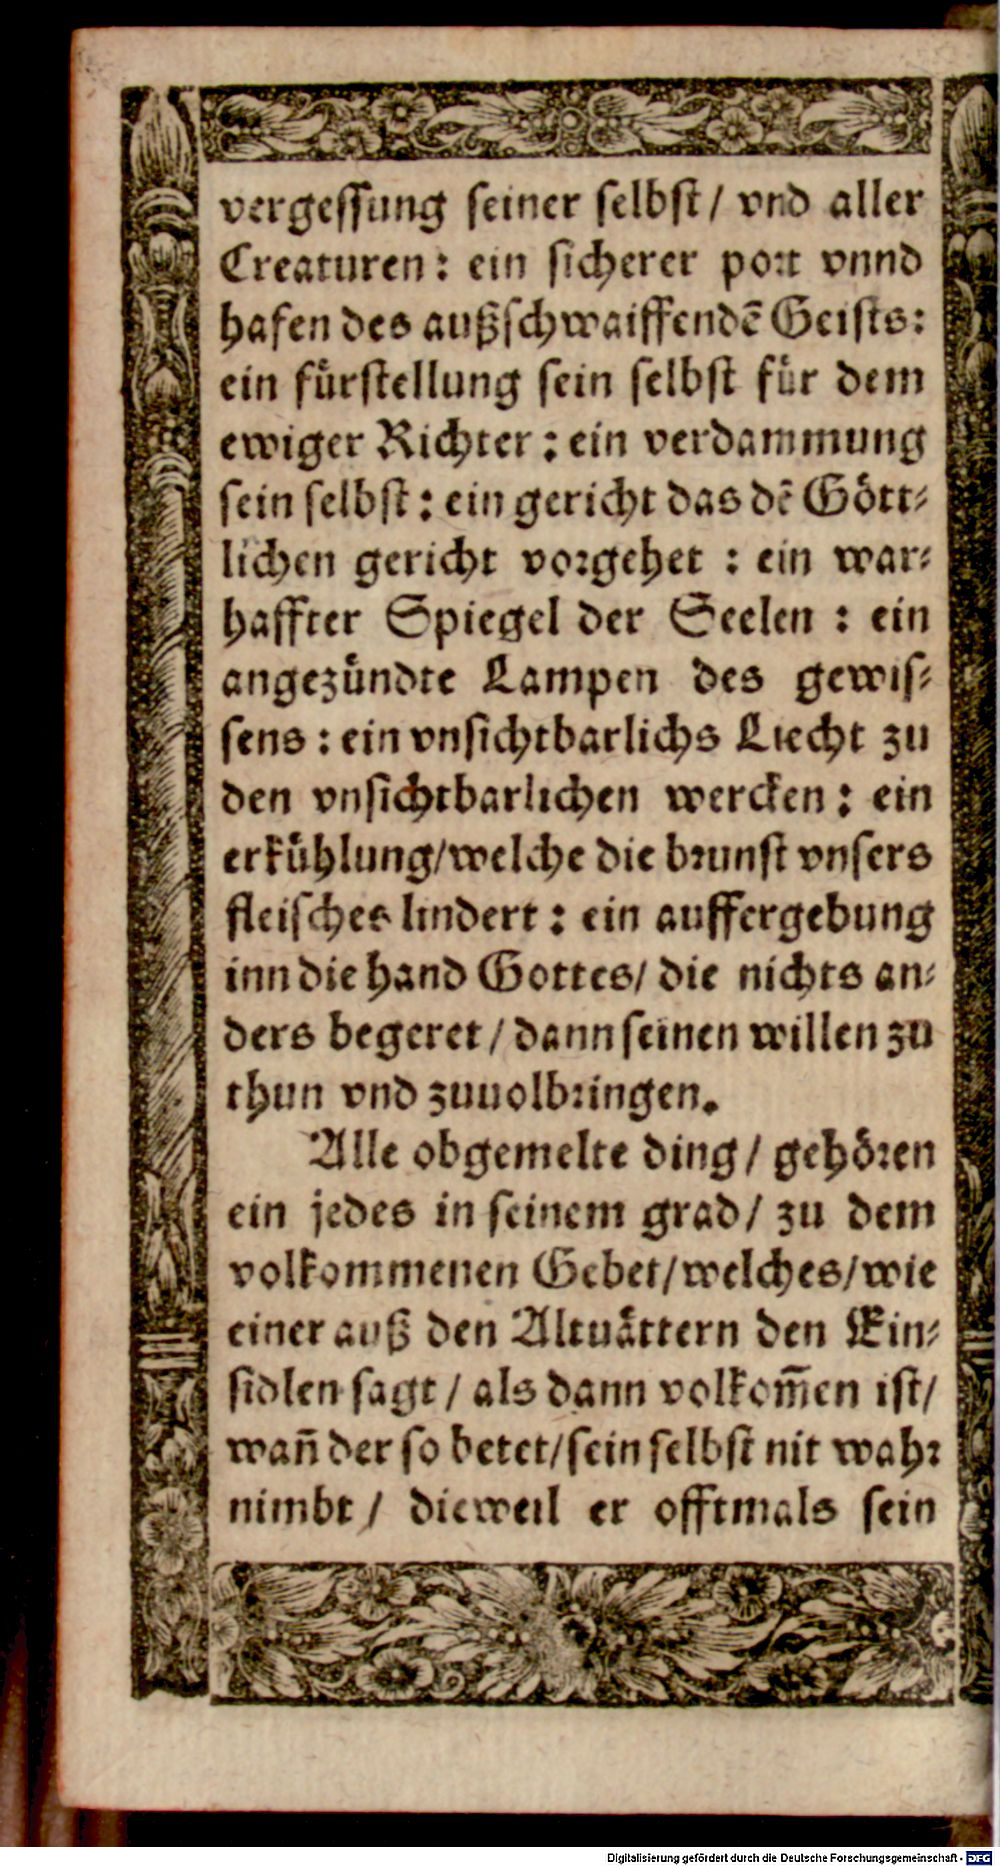 vergessung seiner selbst/ vnd aller
Creaturen: ein sicherer port vnnd
hafen des außschwaiffendẽ Geists:
ein fürstellung sein selbst für dem
ewiger Richter: ein verdammung
sein selbst: ein gericht das dẽ Gött⸗
lichen gericht vorgehet : ein war⸗
haffter Spiegel der Seelen : ein
angezündte Lampen des gewis⸗
sens : ein vnsichtbarlichs Liecht zu
den vnsichtbarlichen wercken: ein
erkühlung/welche die brunst vnsers
fleisches lindert: ein auffergebung
inn die hand Gottes/ die nichts an⸗
ders begeret/ dann seinen willen zu
thun vnd zuuolbringen.
Alle obgemelte ding/ gehören
ein jedes in seinem grad/ zu dem
volkommenen Gebet/welches/wie
einer auß den Altuättern den Ein⸗
sidlen sagt/ als dann volkom̃en ist/
wañ der so betet/sein selbst nit wahr
nimbt/ dieweil er offtmals sein
Digitalisierung gefördert durch die Deutsche Forschungsgemeinschaft - DFG